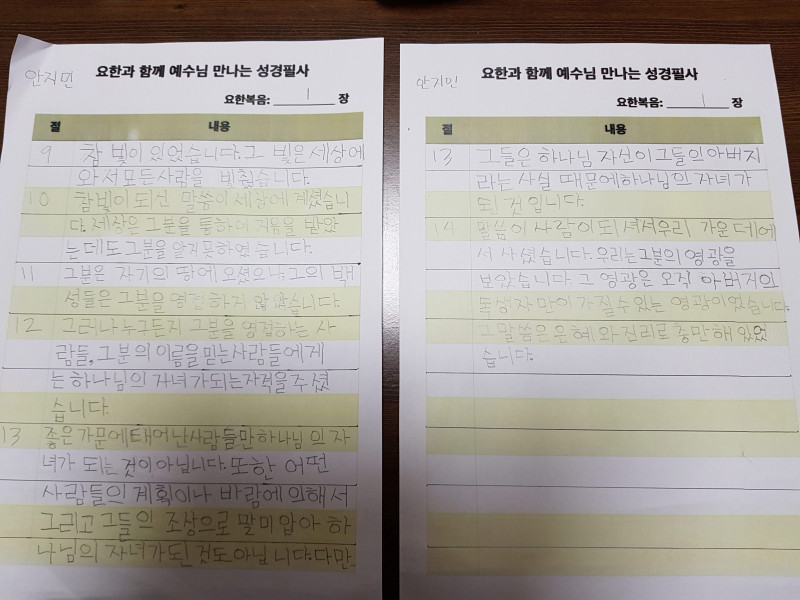 안지민
요한과 함께 예수님 만나는 성경필사
요한복음: 1 장
절 내용
9 참 빛이 있었습니다. 그 빛은 세상에
와서 모든 사람을 빛췄습니다.
10 참빛이 되신 말씀이 세상에 계셨습니
다. 세상은 그분을 통하여 지음을 받았
는데도 그분을 알지 못하였습니다.
11 그분은 자기의 땅에 오셨으나 그의 백
성들은 그분을 영접하지 않았습니다.
12 그러나 누구든지 그분을 영접하는 사
람들, 그분의 이름을 믿는 사람들에게
는 하나님의 자녀가 되는 자격을 주셨
습니다.
13 좋은 가문에 태어난 사람들만 하나님의 자
녀가 되는 것이 아닙니다. 또한 어떤
사람들의 계획이나 바람에 의해서
그리고 그들의 조상으로 말미암아 하
나님의 자녀가 된 것도 아닙니다. 다만
안지민
요한과 함께 예수님 만나는 성경필사
요한복음: 1 장
절 내용
13 그들은 하나님 자신이 그들의 아버지
라는 사실 때문에 하나님의 자녀가
된 것입니다.
14 말씀이 사람이 되셔서 우리 가운데에
서 사셨습니다. 우리는 그분의 영광을
보았습니다. 그 영광은 오직 아버지의
독생자만이 가질 수 있는 영광이었습니다.
그 말씀은 은혜와 진리로 충만해 있었
습니다.